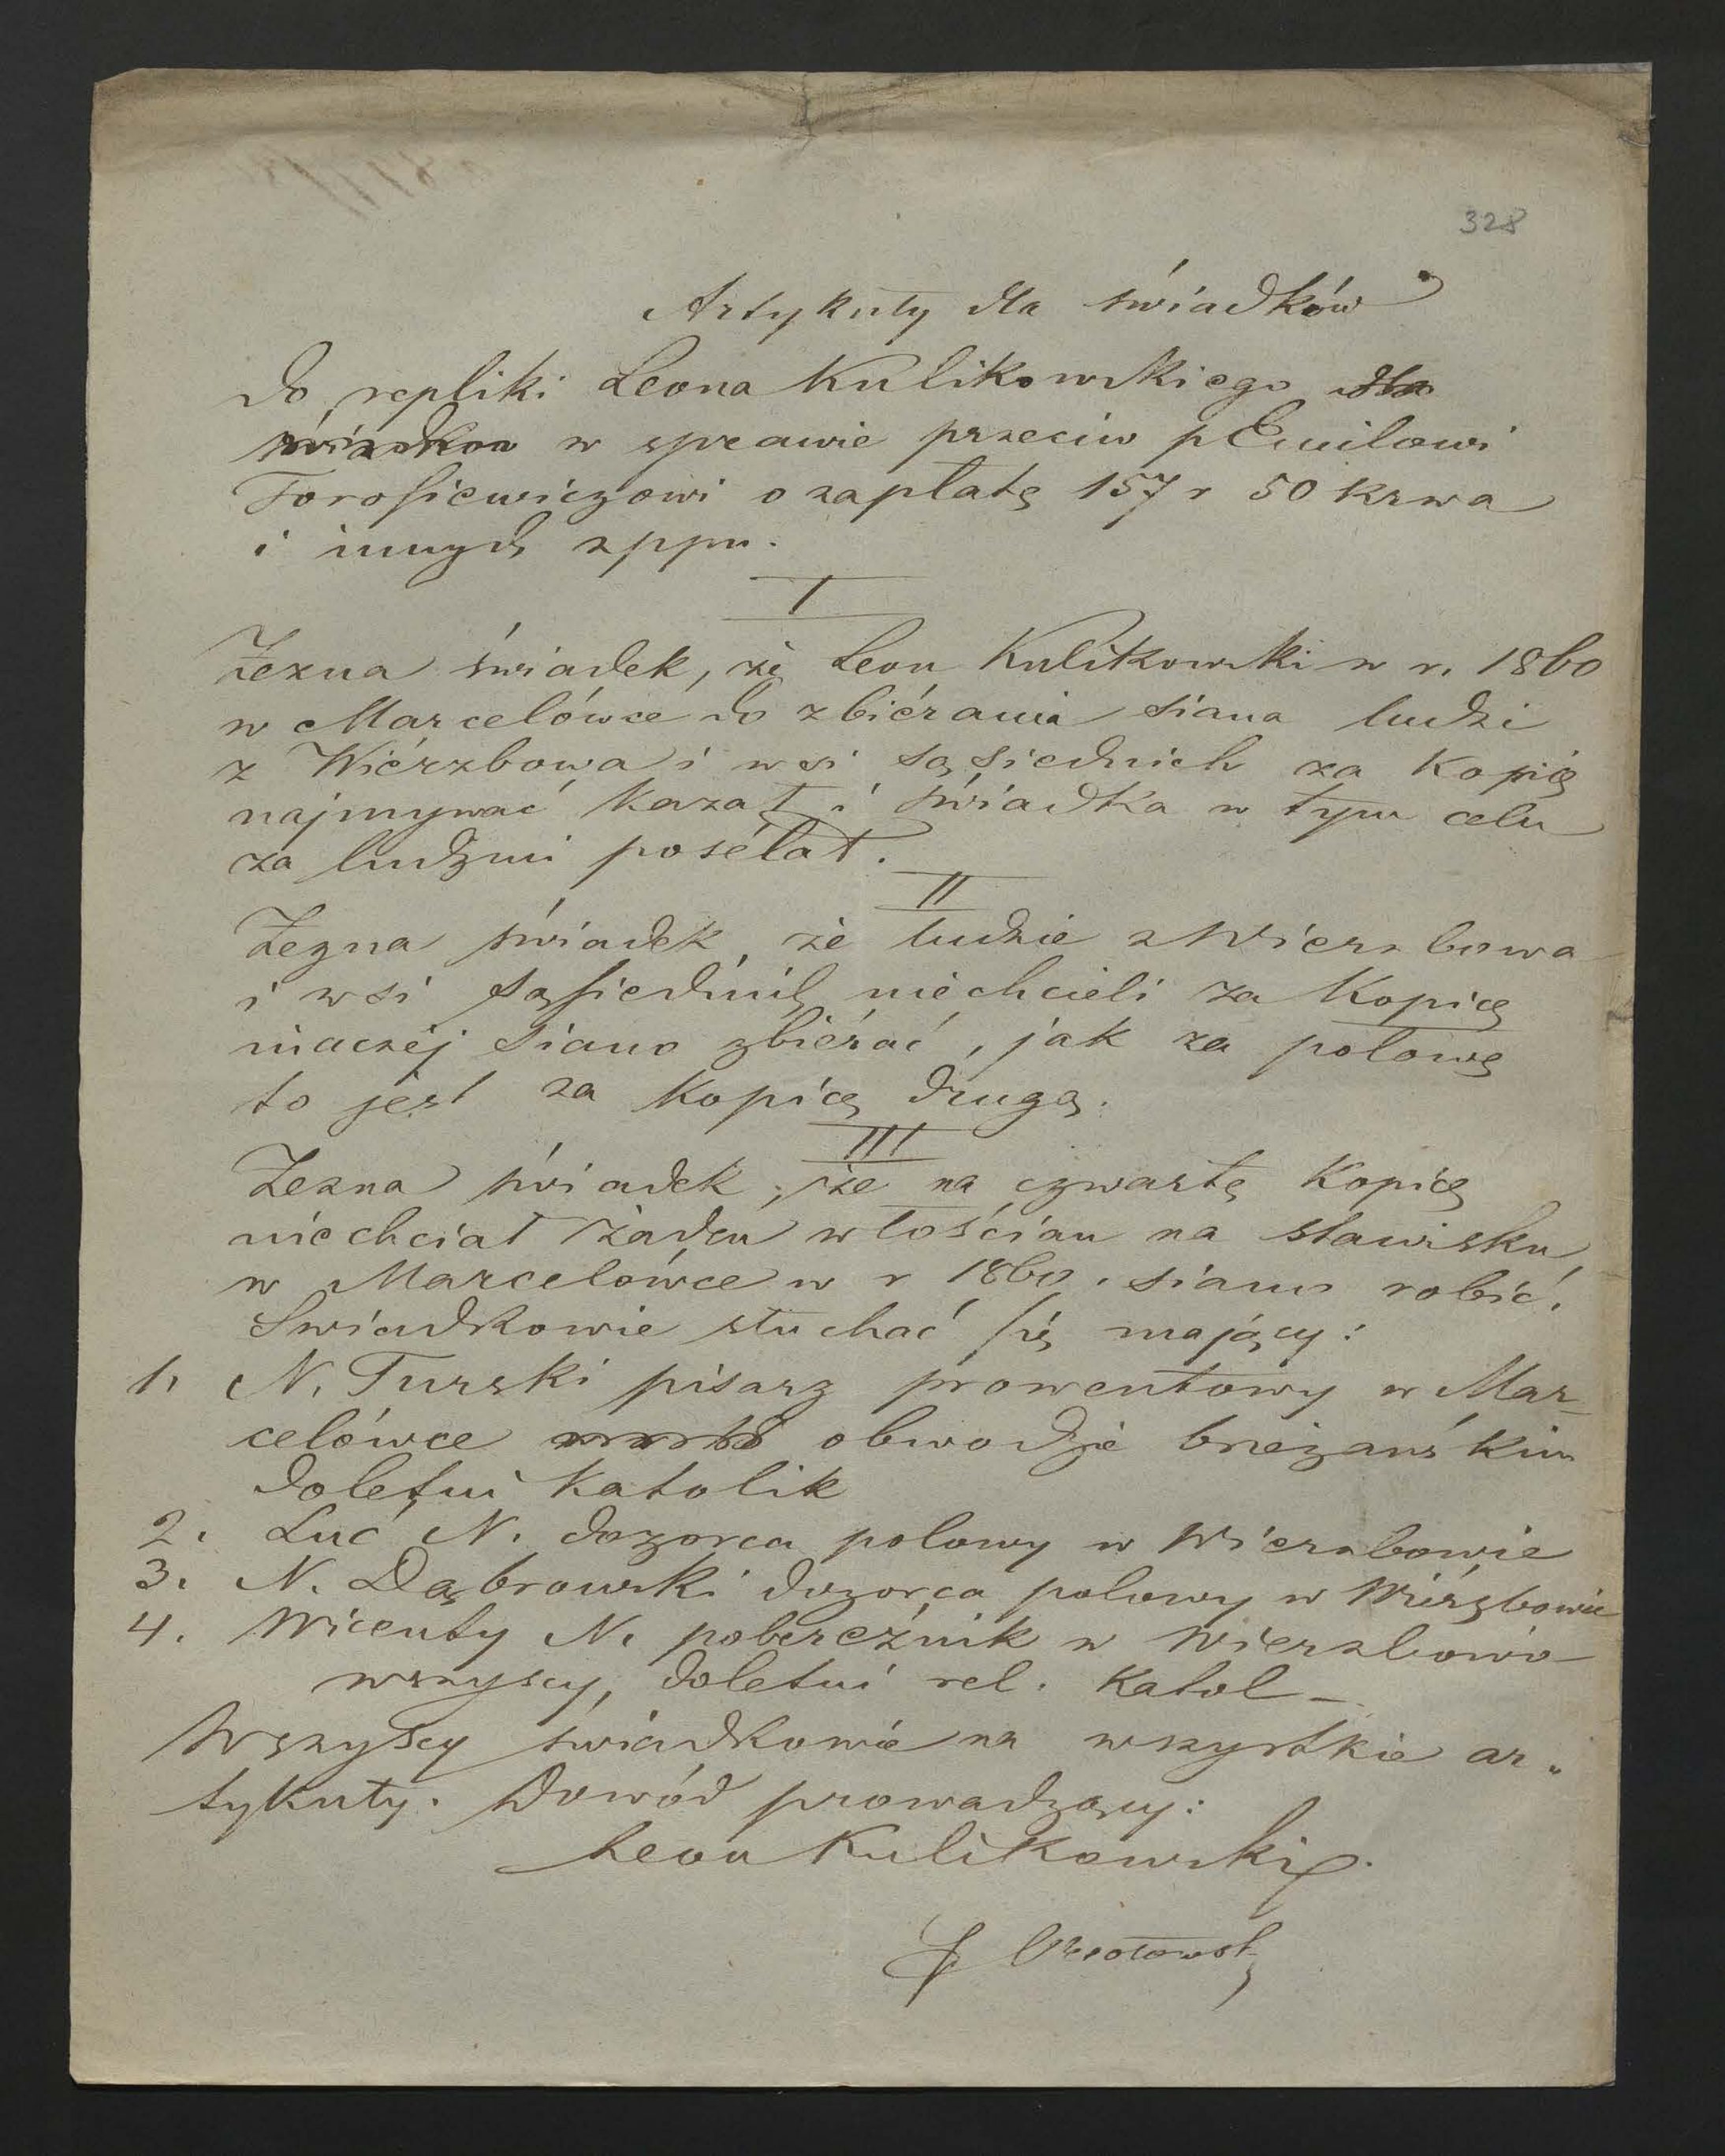 328
Artykuły dla świadków
do repliki Leona Kulikowskiego dla
świadków w sprawie przeciw p Emilowi
Torosiewiczowi o zapłatę 157 r 50 kr wa
i innych zppn.
I
Zezna świadek, że Leon Kulikowski w r. 1860
w Marcelówce do zbiérania siana ludzi
z Wiérzbowa i wsi sąsiednich za kopię
najmywać kazał i świadka w tym celu
za ludzmi posélał.
II
Zezna świadek, że ludzie z Wierzbowa
i wsi sąsiednich niechcieli za kopicę
inaczéj siano zbiérać, jak za połowę
to jest za kopicę drugą.
III
Zezna świadek, że na czwartą kopicę
niechciał żaden włościan na stawisku
w Marcelówce w r 1860. siano robić.
Swiadkowie słuchać się mający:
1. N. Turski pisarz prowentowy w Mar-
celówce obwodzie brzeżańskim
doletni katolik
2. Luć N. dozorca polowy w Wierzbowie
3. N. Dąbrowski dozorca polowy w Wiérzbowie
4. Wicenty N. pobereźnik w Wierzbowie
wszyscy, doletni rel. katol -
Wszyscy świadkowie na wszystkie ar-
tykuły. Dowód prowadzący:
Leon Kulikowski